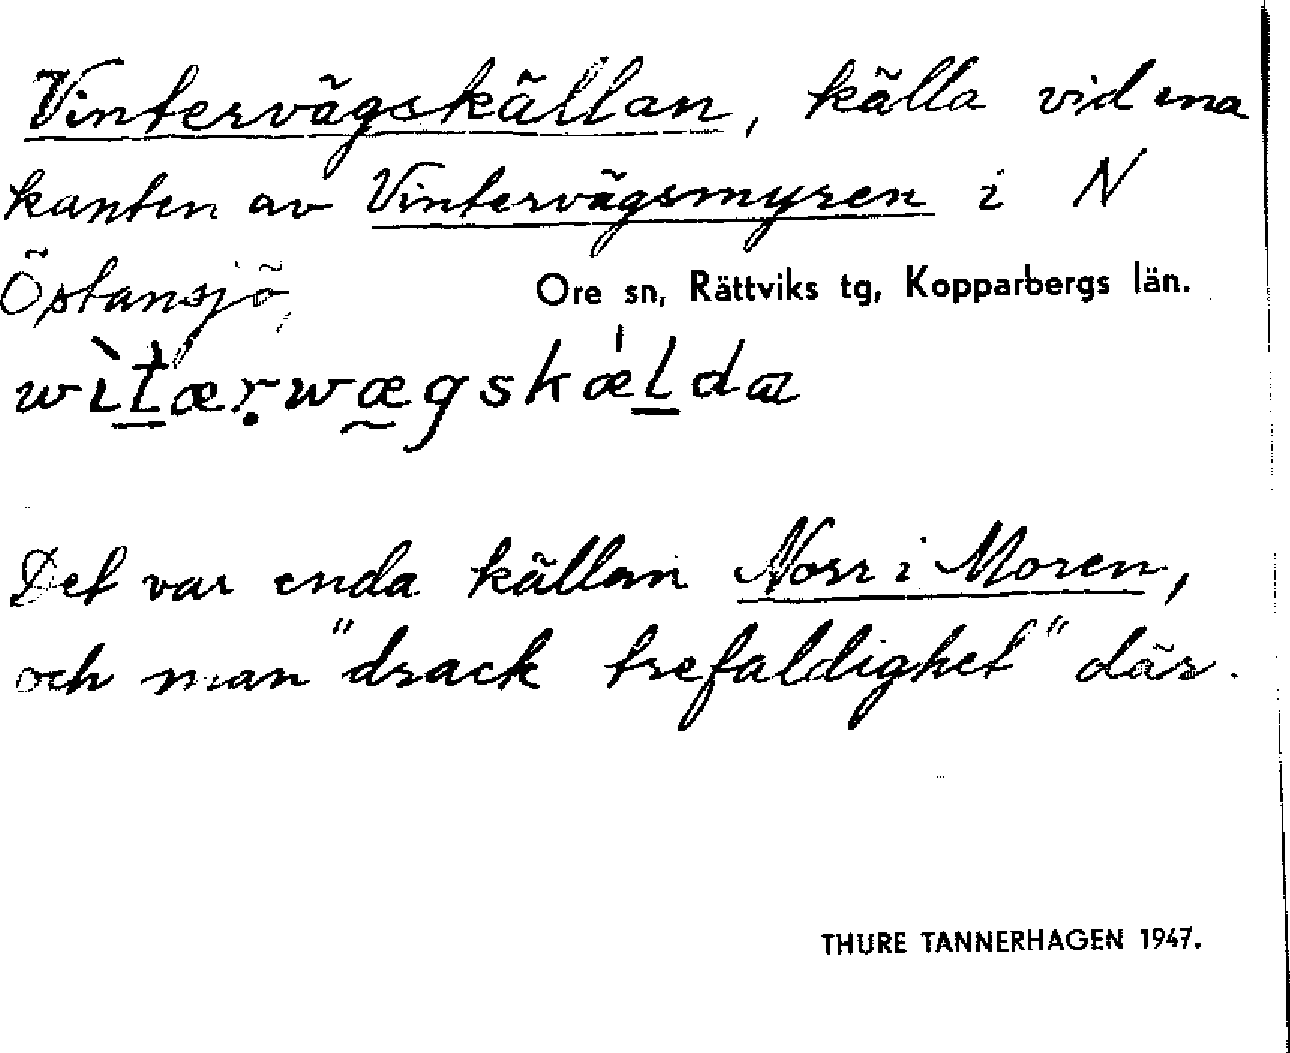 Vintervägskällan, källa vid ena
kanten av Vintervägsmyren i N
Östansjö,
Ore sn, Rättviks tg, Kopparbergs län.
wìtærwægskælda
Det var enda källan Norr i Moren,
och man "drack trefaldighet" där.
THURE TANNERHAGEN 1947.